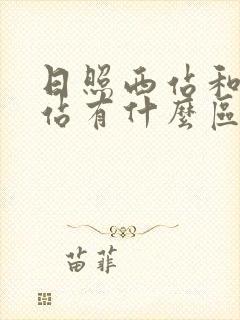 日照西佔和
佔有什麼區
苗菲